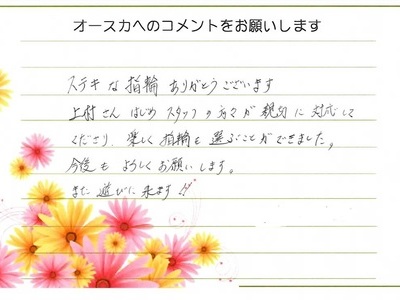 オースカへのコメントをお願いします
ステキな指輪ありがとうございます
上村さんはじめスタッフの方々が親切に対応して
くださり、楽しく指輪を選ぶことができました。
今後もよろしくお願いします。
また遊びに来ます!!